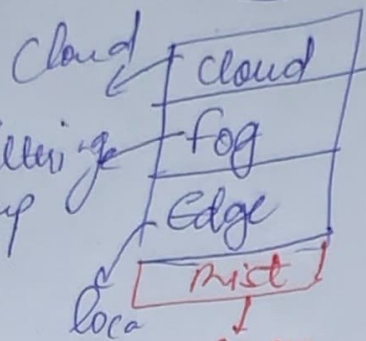 Cloud
Cloud
Fog
Edge
Mist
loca